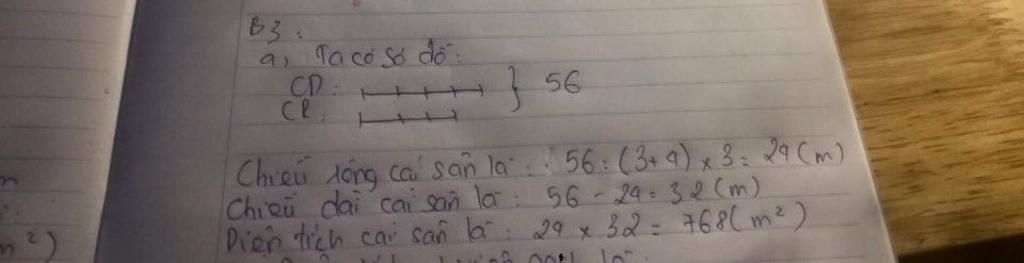 B3:
a, Ta có sơ đồ:
CD:
CR:
} 56
Chiều rộng cái sân là: 56 : (3+4) x 3 = 24 (m)
Chiều dài cái sân là: 56 - 24 = 32 (m)
Diện tích cái sân là: 24 x 32 = 768 (m²)
m
m²)